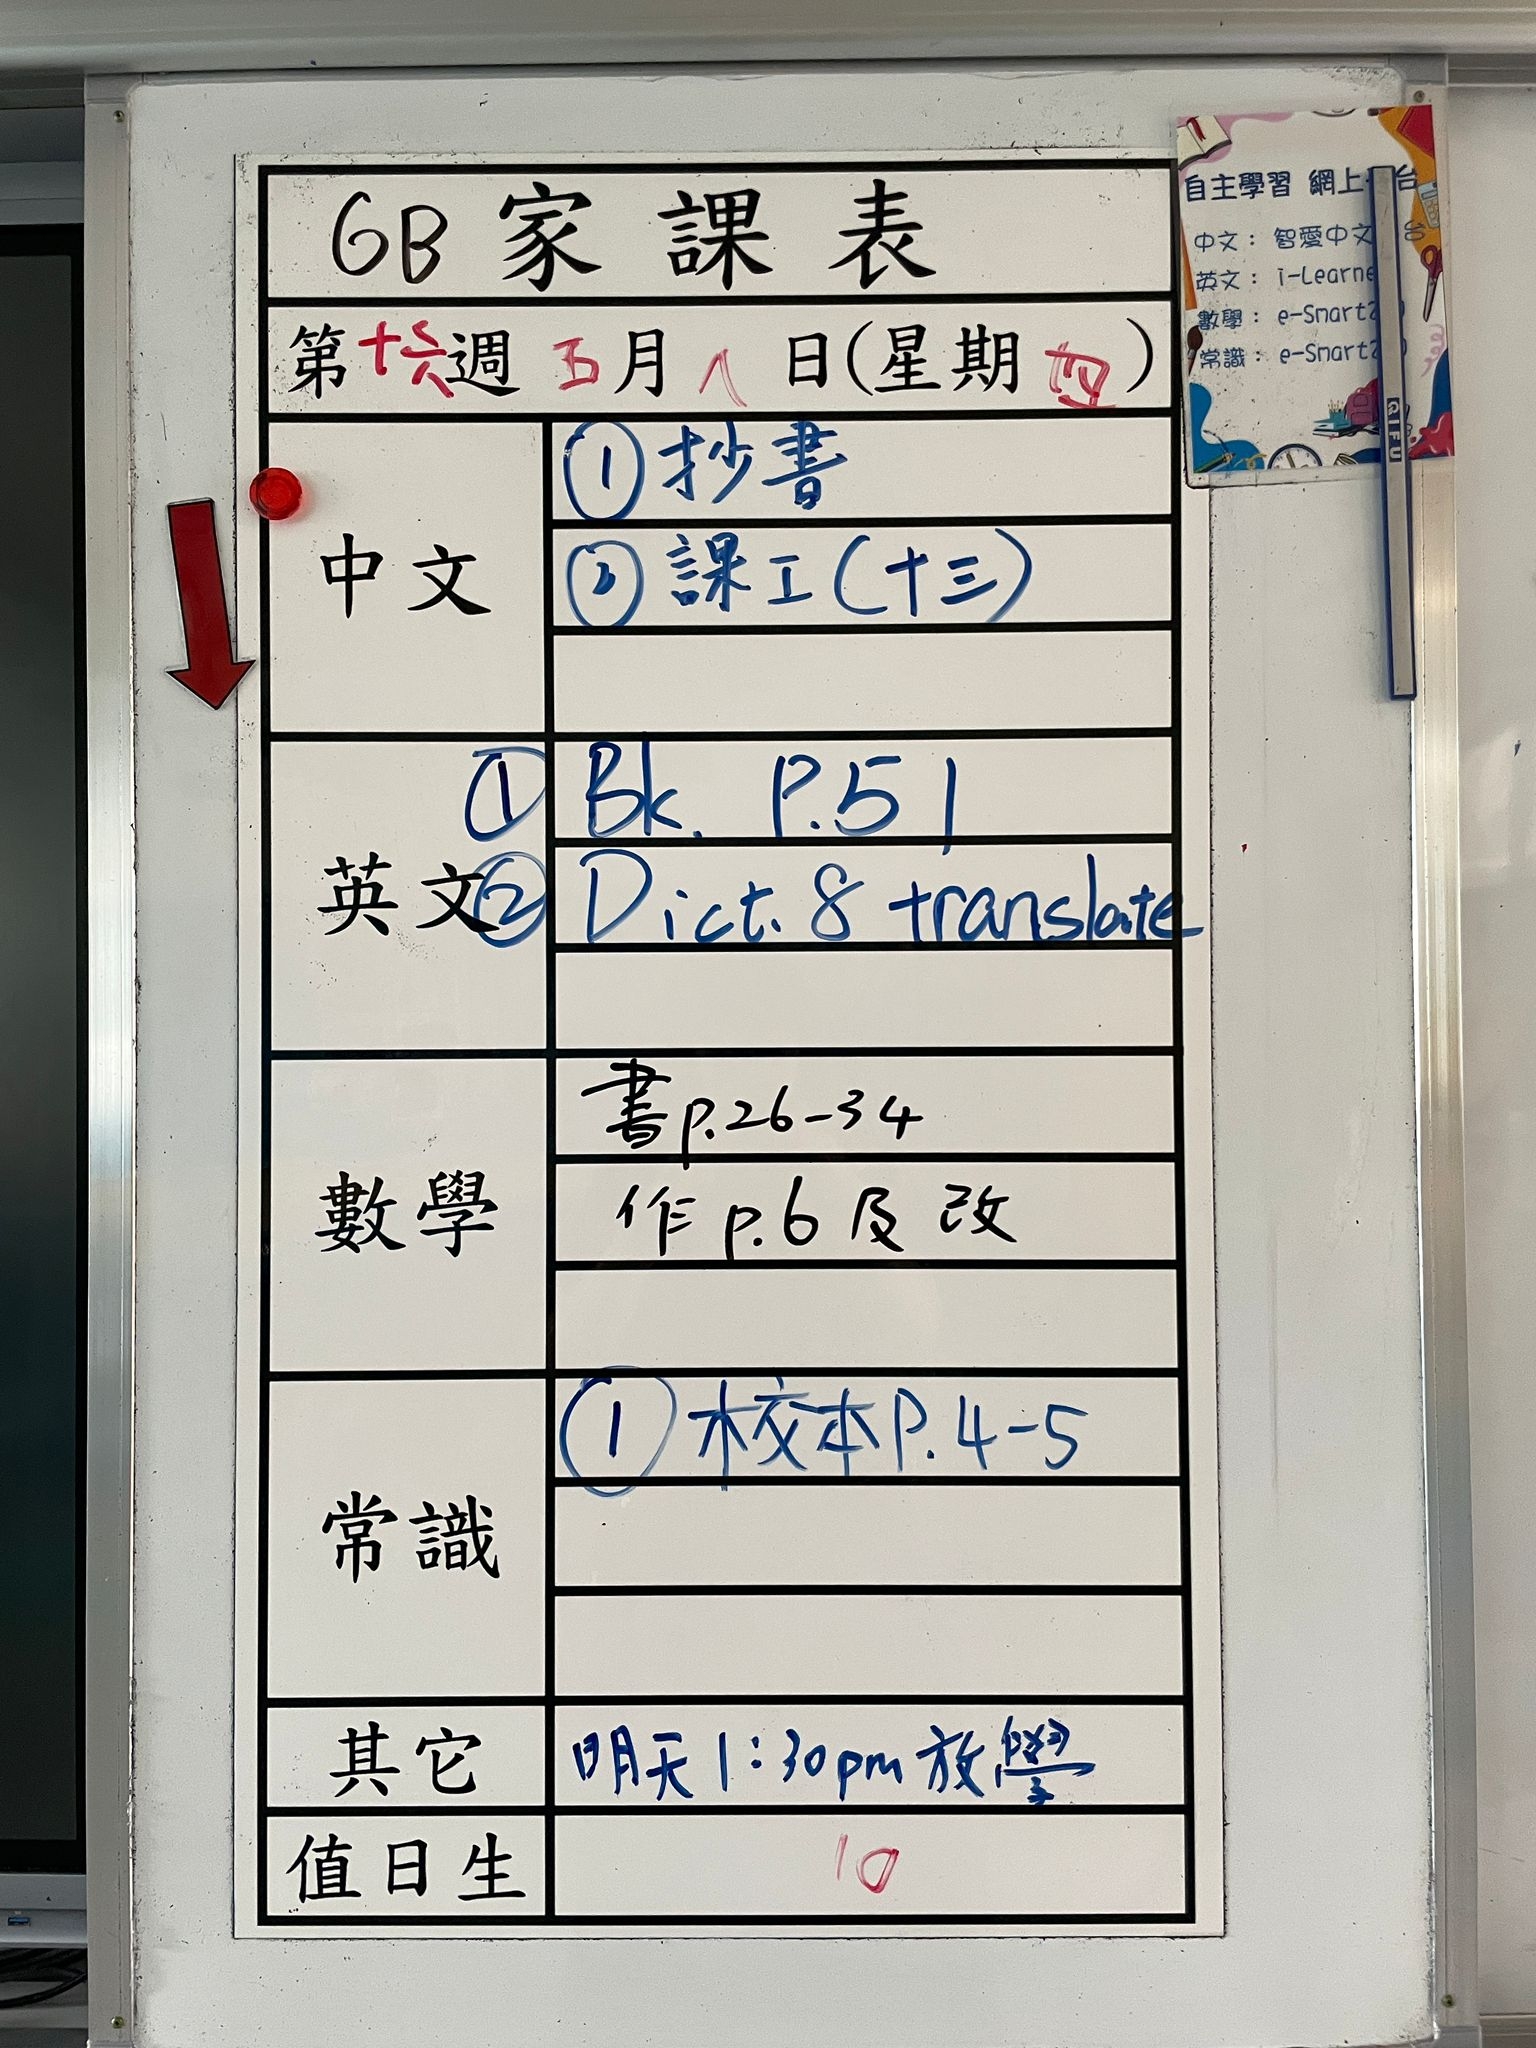 6B 家課表
第十六週 五月八日(星期四)
中文
①抄書
②課工(十三)
英文
① Bk. P.51
② Dict. 8 translate
數學
書p.26-34
作p.6及改
常識
①校本P.4-5
其它
明天1:30pm放學
值日生
10
自主學習 網上 台
中文: 智愛中文 台
英文: i-Learne
數學: e-Smart
常識: e-Smart
QIFU